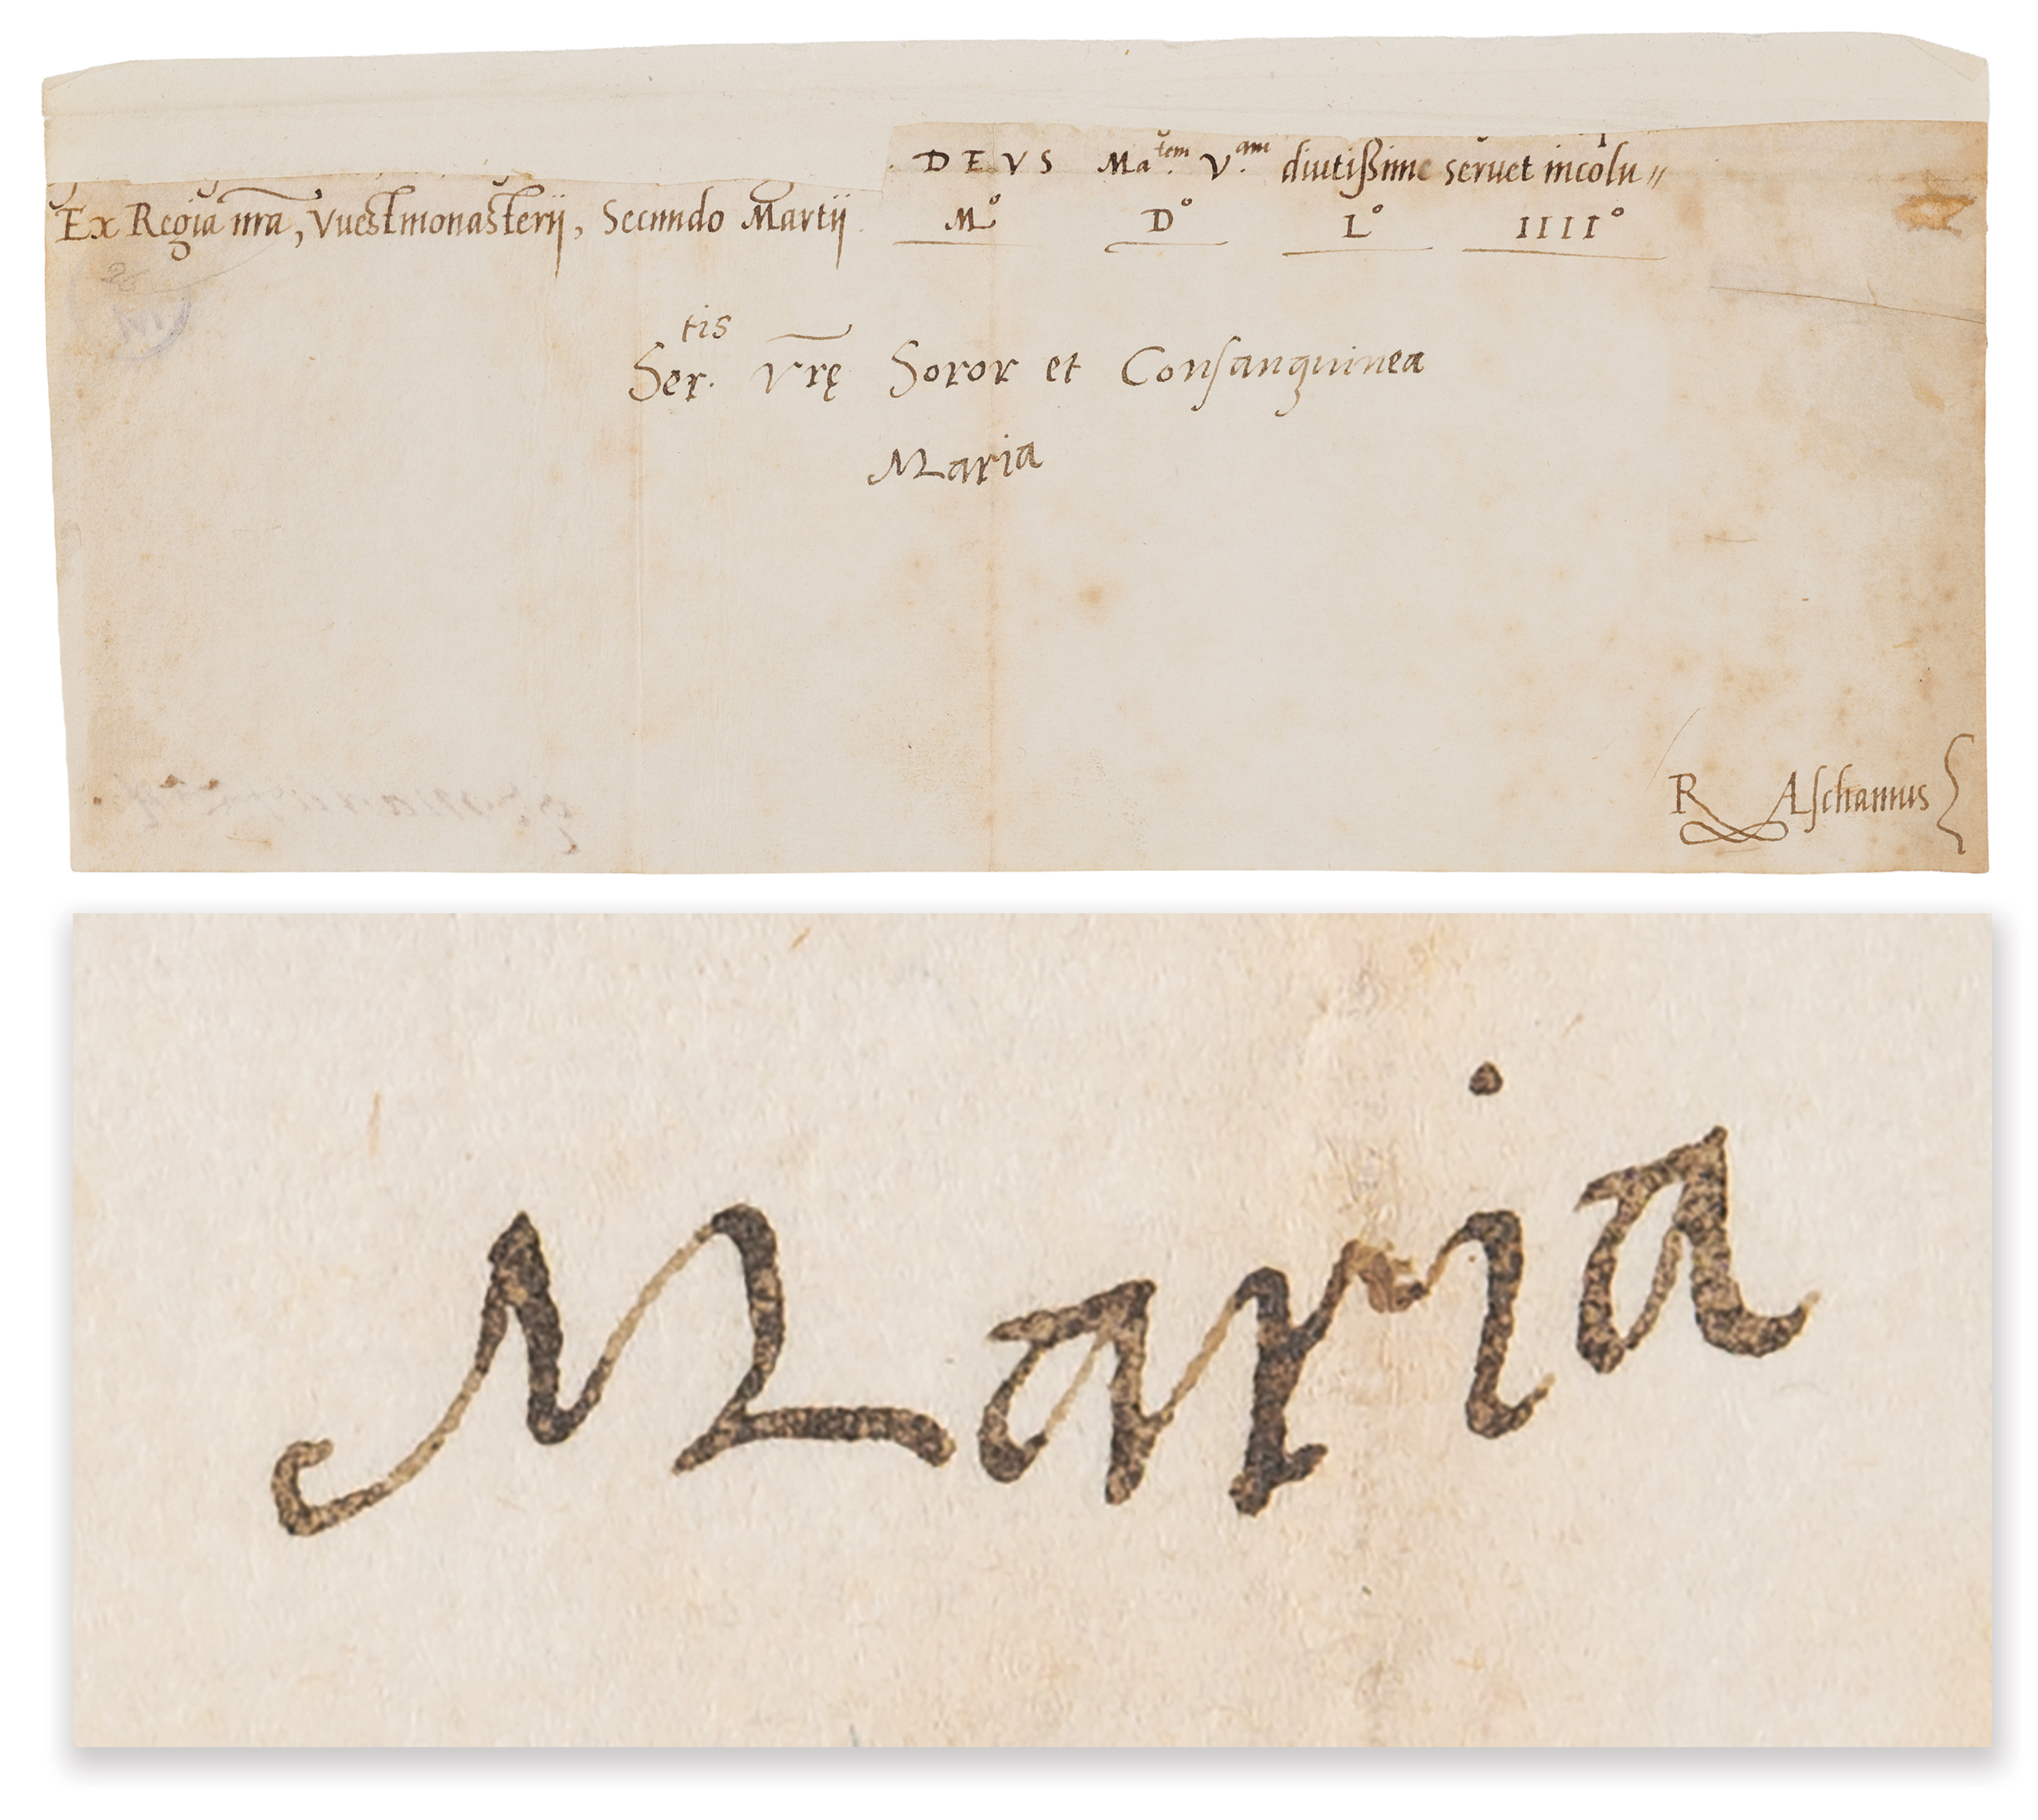 DEVS Ma.tem V.am diutißime seruet incolu〃
Ex Regia nra, Vuestmonasterij, Secundo Martij. Mº Dº Lº IIIIº
Ser.tis Vrę Soror et Consanguinea
Maria
R Aschamus
Maria